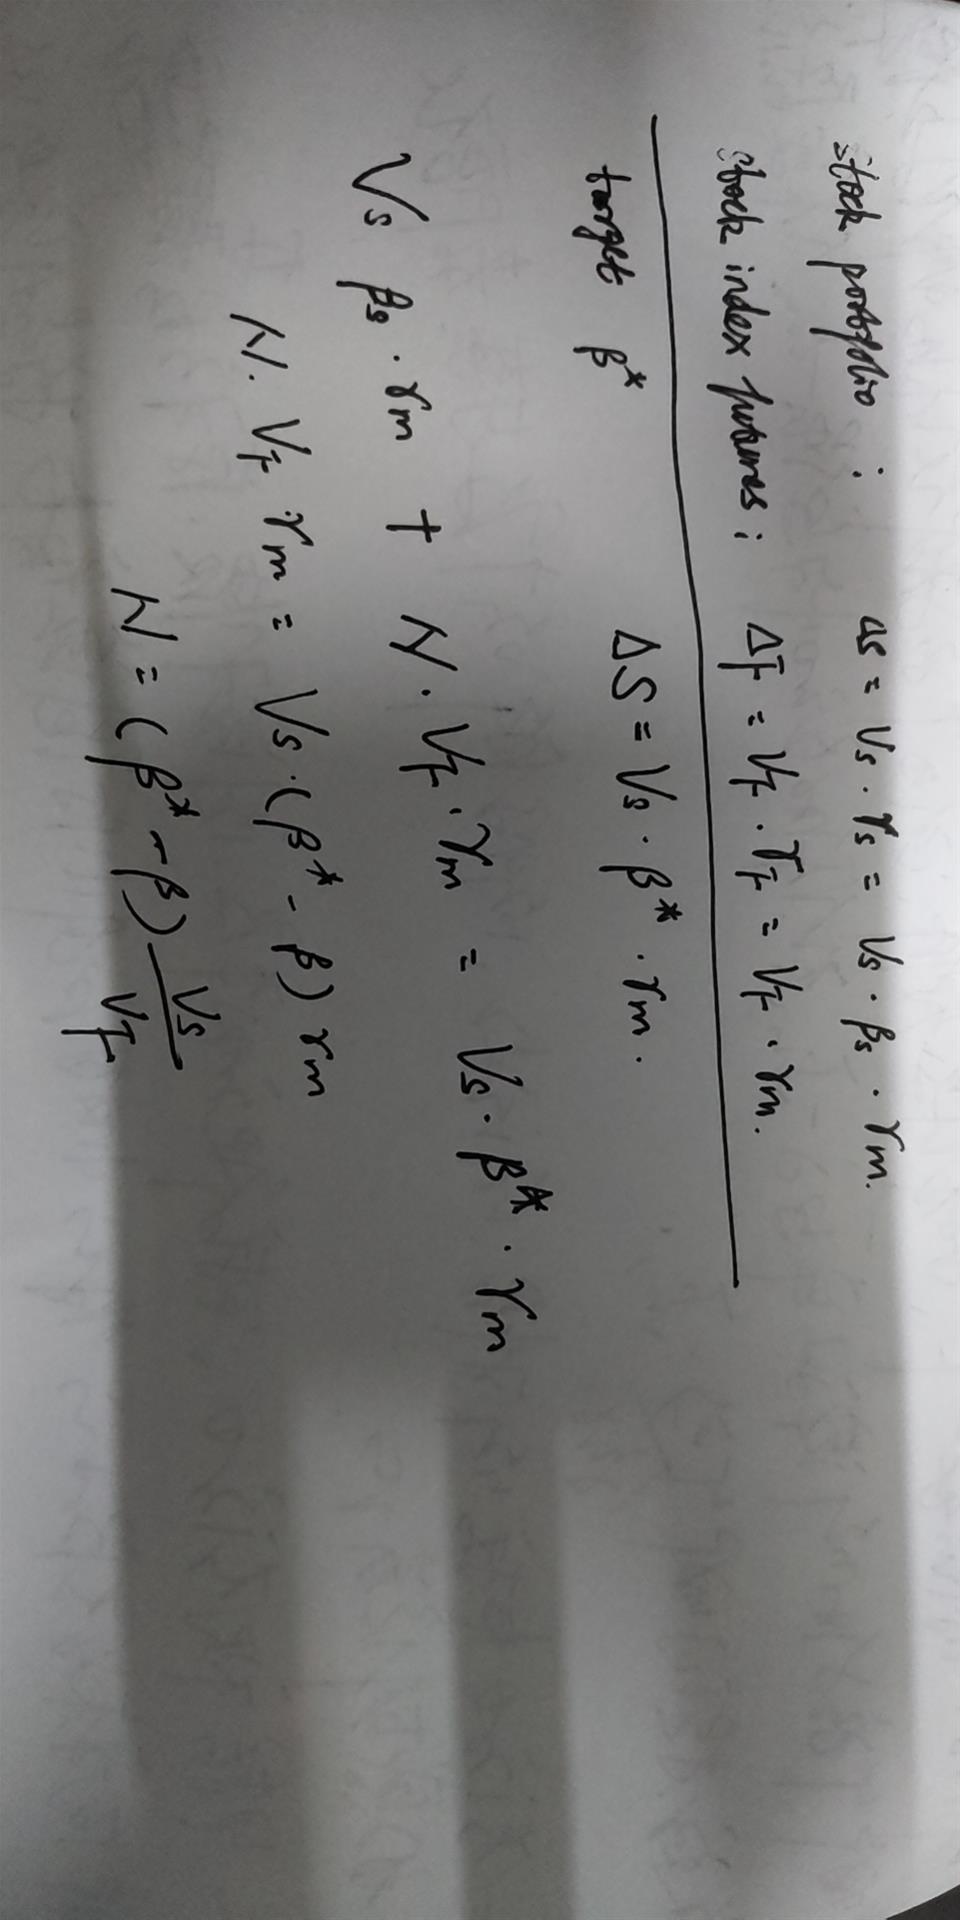 stock portfolio : ΔS = Vs · rs = Vs · βs · rm.
stock index futures : ΔF = VF · rF = VF · rm.
target β* ΔS = Vs · β* · rm.
Vs βs · rm + N · VF · rm = Vs · β* · rm
N · VF rm = Vs · (β* - β) rm
N = (β* - β) Vs/VF